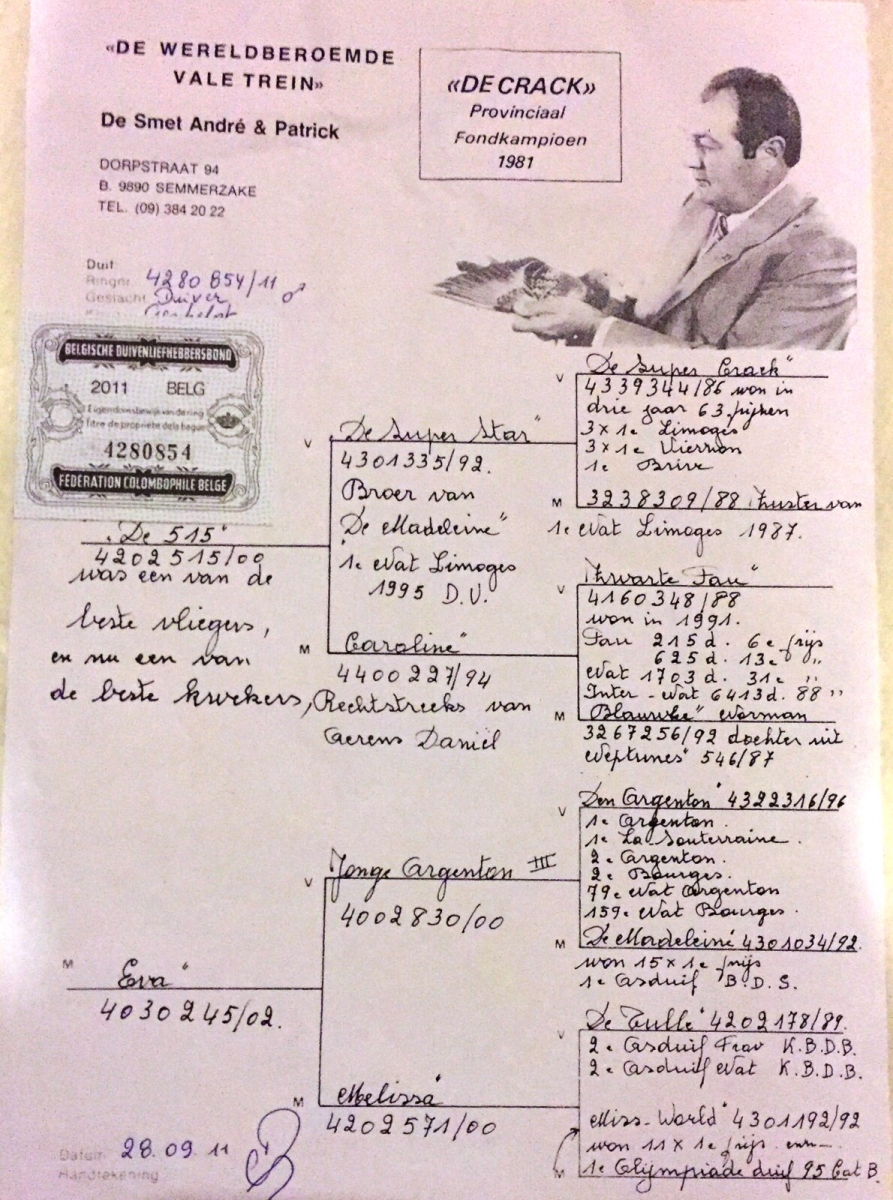 «DE WERELDBEROEMDE
VALE TREIN»
De Smet André & Patrick
DORPSTRAAT 94
B. 9890 SEMMERZAKE
TEL. (09) 384 20 22
«DE CRACK»
Provinciaal
Fondkampioen
1981
Duif
Ringnr. 4280854/11
Geslacht Duiver ♂
BELGISCHE DUIVENLIEFHEBBERSBOND
2011 BELG
Eigendomsbewijs van de ring
Titre de propriété de la bague
4280854
FÉDÉRATION COLOMBOPHILE BELGE
V
„De 515"
4202515/00
was een van de
beste vliegers,
en nu een van
de beste kwekers,
V
„De Super Star"
4301335/92.
Broer van
„De Madeleine"
1e Nat Limoges
1995 D.V.
M
Caroline"
4400227/94
Rechtstreeks van
Aerens Daniël
V
„De Super Crack"
4339344/86 won in
drie jaar 63 prijzen
3x 1e Limoges
3x 1e Vierzon
1e Brive
M
3238309/88 Zuster van
1e Nat Limoges 1987.
V
Zwarte Fau"
4160348/88
won in 1991.
Pau 215 d. 6e prijs
625 d. 13e "
Nat 1703 d. 31e "
Inter-Nat 6413d. 88 "
M
Blauwke" Norman
3267256/92 dochter uit
Neptunes" 546/87
M
Eva"
4030245/02.
V
Jonge Argenton III
4002830/00
M
Melissa"
4202571/00
V
Den Argenton" 4322316/96
1e Argenton.
1e La Souterraine.
2e Argenton.
2e Bourges.
79e Nat Argenton
159e Nat Bourges.
M
De Madeleine" 4301034/92.
won 15 x 1e prijs
1e Asduif B.D.S.
V
De Tulle" 4202178/89.
2e Asduif Prov K.B.D.B.
2e Asduif Nat K.B.D.B.
M
Miss-World" 4301192/92
won 11 x 1e prijs
1e Olympiade duif 95 Cat B.
Datum 28.09.11
Handtekening